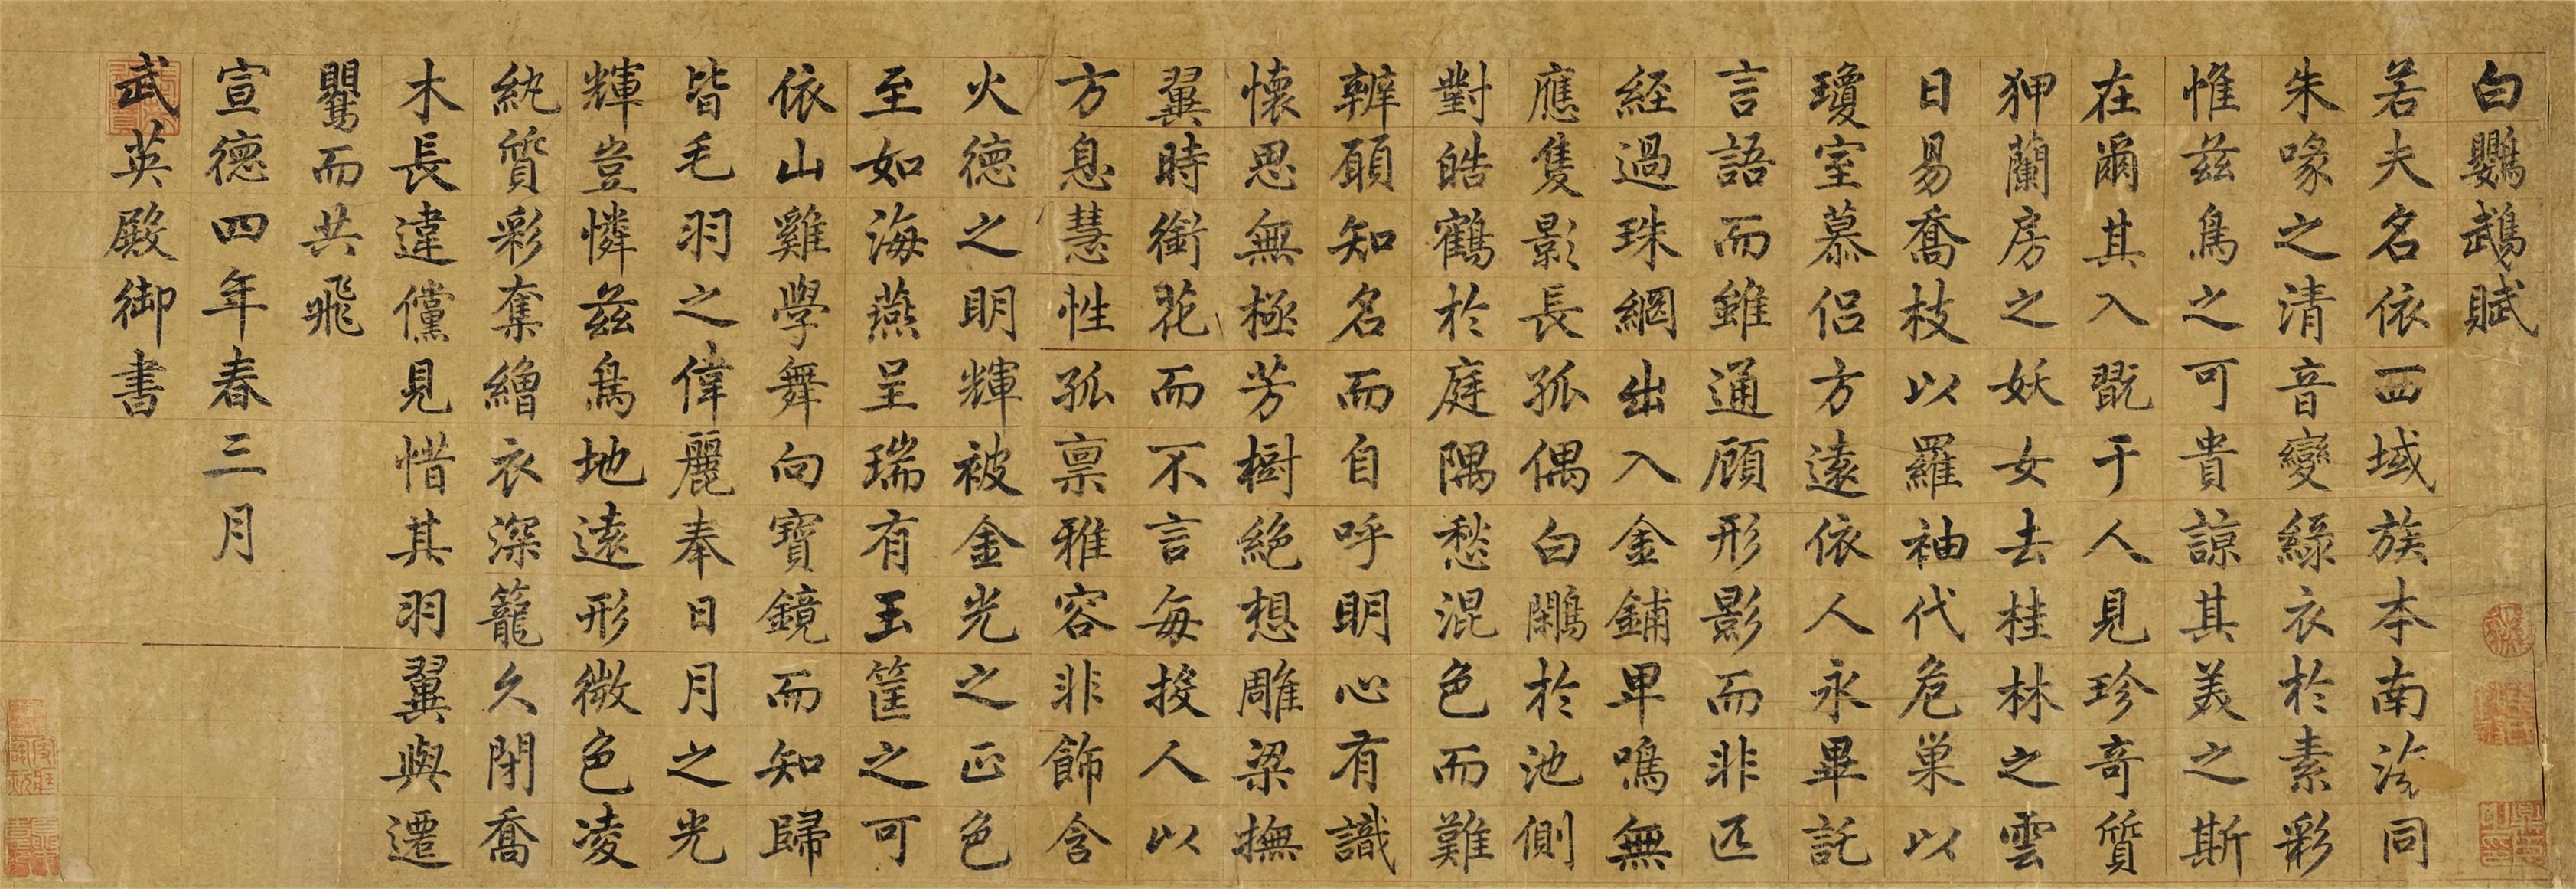 白鸚鵡賦
若夫名依西域族本南海同
朱喙之清音變綠衣於素彩
惟茲鳥之可貴諒其美之斯
在爾其入翫于人見珍奇質
狎蘭房之妖女去桂林之雲
日易喬枝以羅袖代危巢以
瓊室慕侶方遠依人永畢託
言語而雖通顧形影而非匹
經過珠網出入金鋪單鳴無
應隻影長孤偶白鷴於池側
對皓鶴於庭隅愁混色而難
辨願知名而自呼明心有識
懷思無極芳樹絕想雕梁撫
翼時銜花而不言每投人以
方息慧性孤稟雅容非飾含
火德之明輝被金光之正色
至如海燕呈瑞有玉筐之可
依山雞學舞向寶鏡而知歸
皆毛羽之偉麗奉日月之光
輝豈憐茲鳥地遠形微色凌
紈質彩奪繒衣深籠久閉喬
木長違儻見惜其羽翼與遷
鸎而共飛
宣德四年春三月
武英殿御書